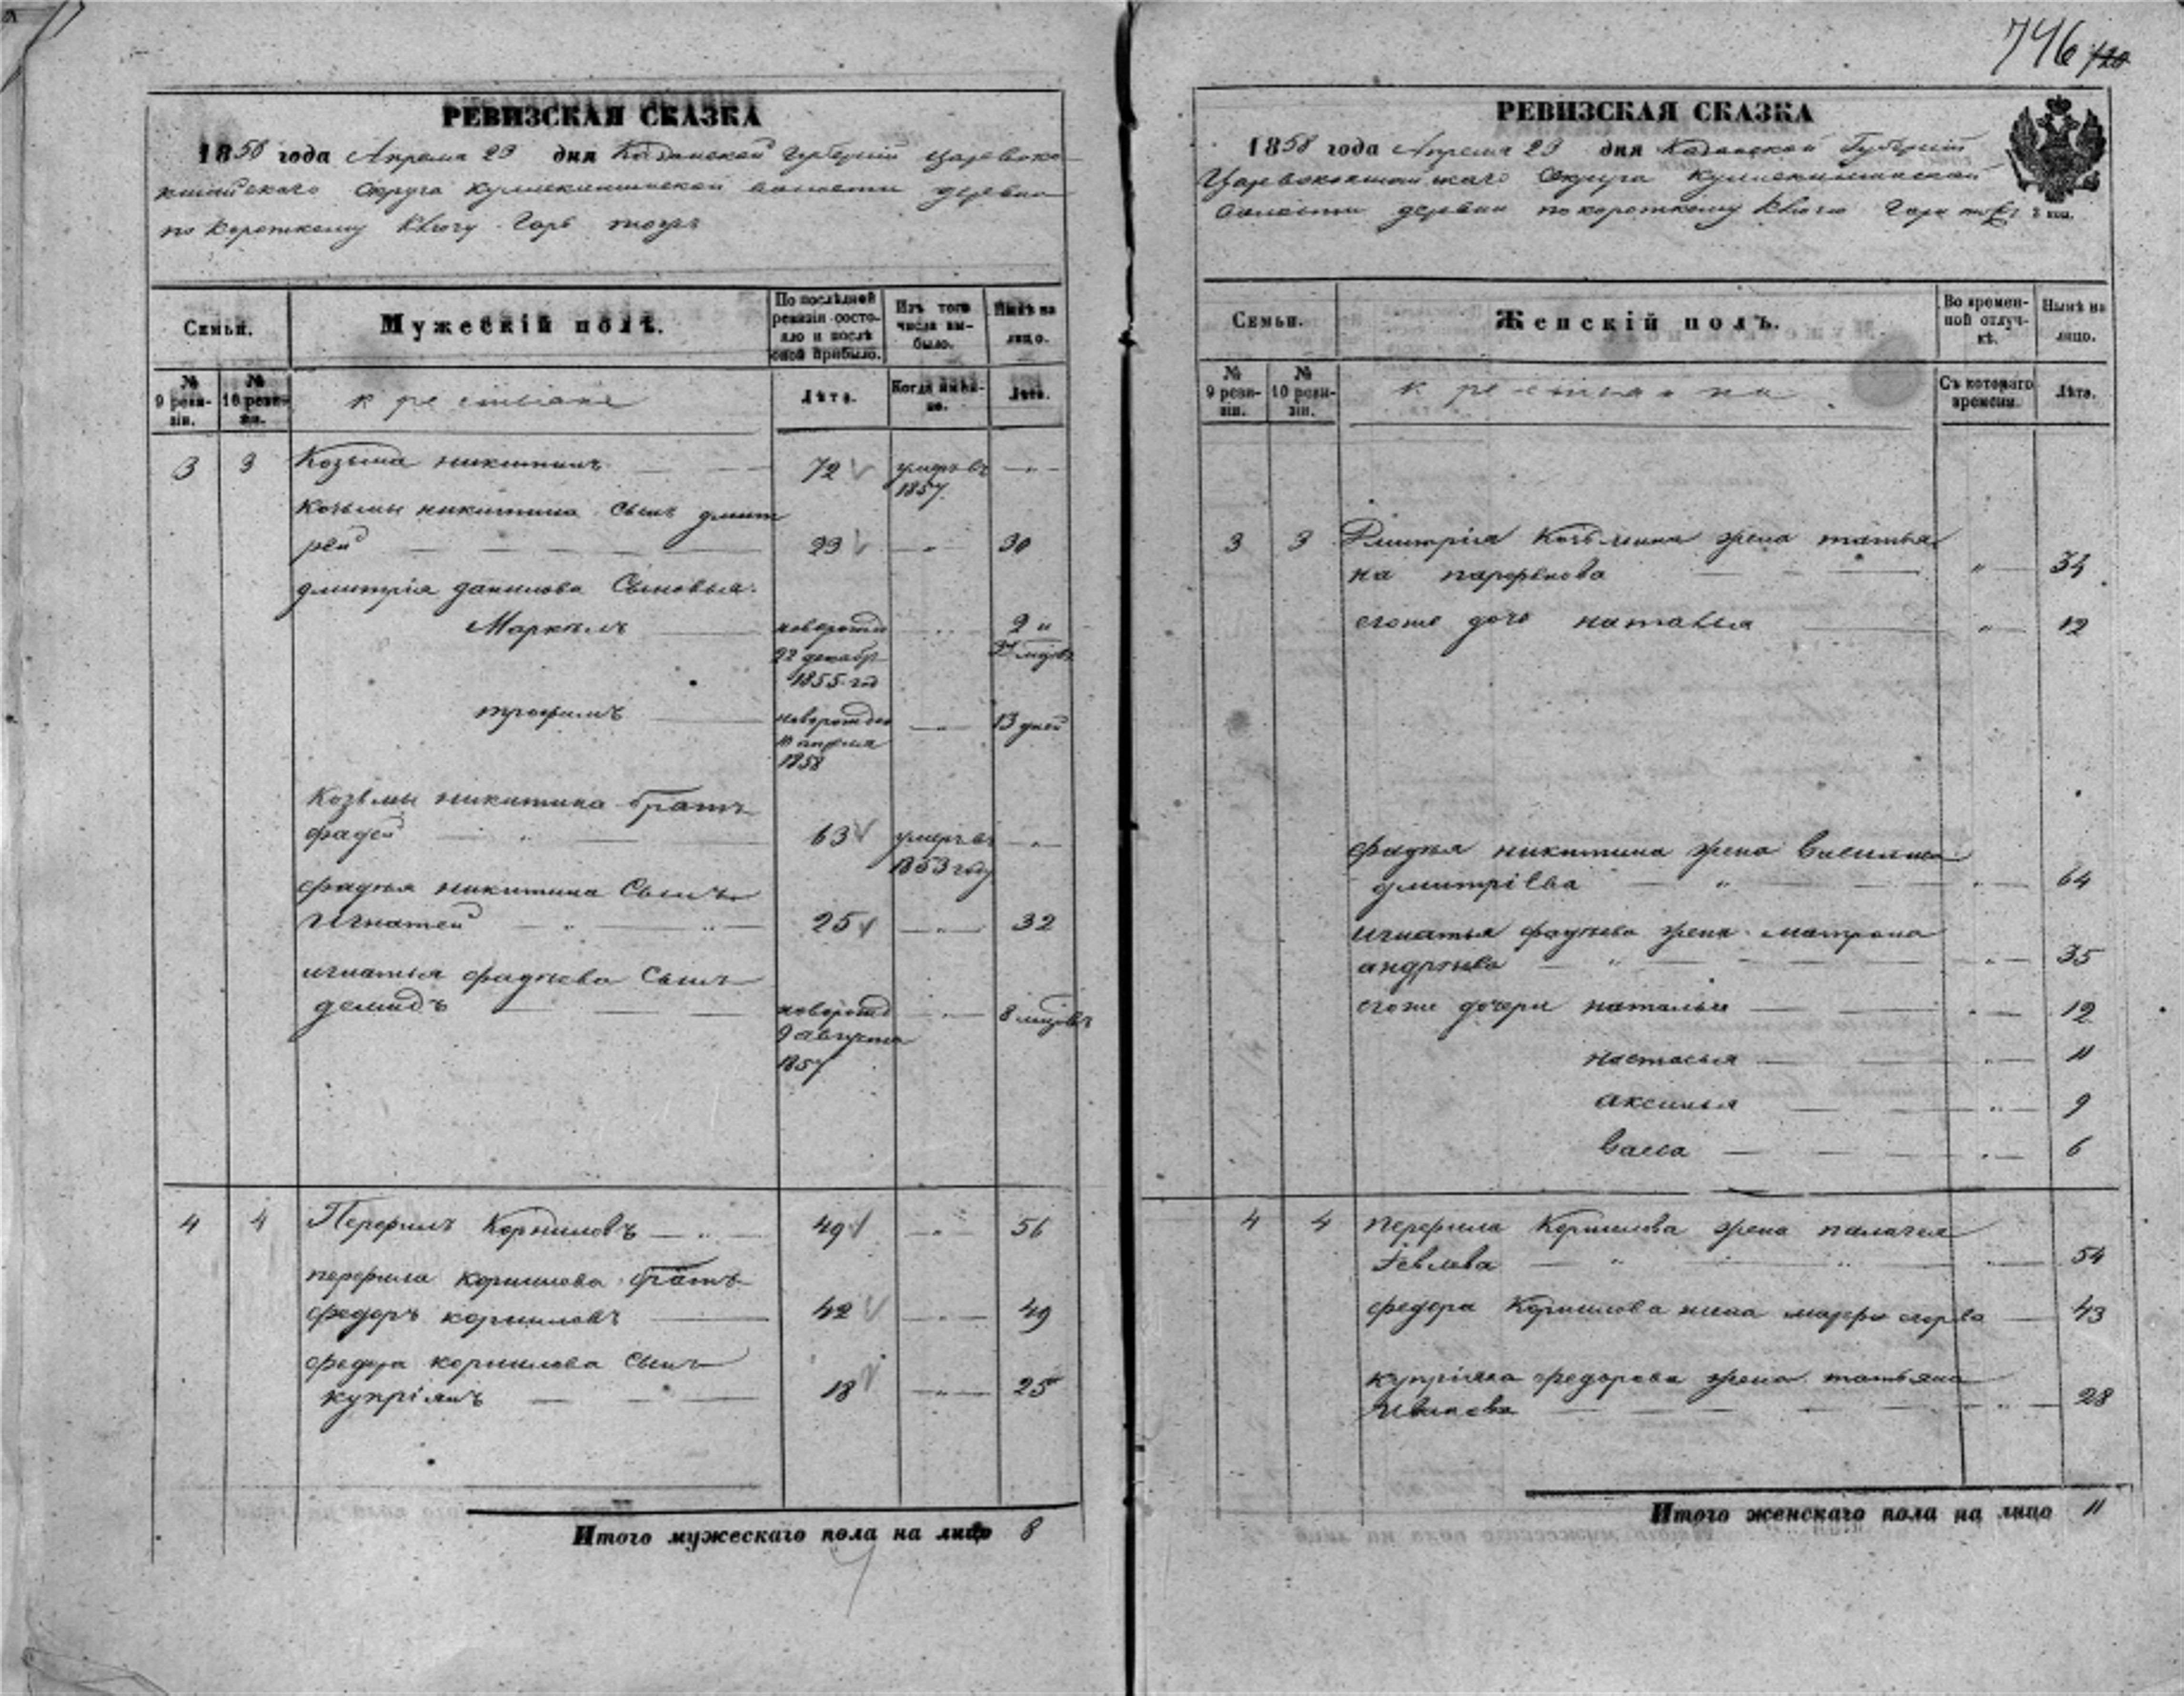 746 120
РЕВИЗСКАЯ СКАЗКА
1858 года Апреля 23 дня Казанской Губерніи Царевоко-
кшайскаго Округа Кулле волости деревни
по Короткому Ключу Горь
Семьи.
Мужескій полъ.
По послѣдней ревизіи состояло и послѣ оной прибыло.
Изъ того числа выбыло.
Нынѣ на лицо.
№ 9 ревизіи.
№ 10 ревизіи.
крестьяне
Лѣта.
Когда именно.
Лѣта.
3 3 Козьма никитинъ 72 умеръ въ 1857
Козьмы никитина сынъ дмит
рей 23 30
дмитрія данилова Сыновья
Маркелъ новорожд 22 декабр 1855 год 2 и мцовъ
трофимъ новорожден 10 апреля 1858 13 дней
Козьмы никитина братъ
фадей 63 умеръ въ 1853 году
фадея никитина Сынъ
Игнатей 25 32
игнатья фадеева Сынъ
демидъ новорожд 9 августа 1857 8 мцовъ
4 4 Перфилъ Корниловъ 49 56
перфила корнилова братъ
федоръ корниловъ 42 49
федора корнилова сынъ
купріянъ 18 25
Итого мужескаго пола на лицо 8
РЕВИЗСКАЯ СКАЗКА
1858 года Апреля 23 дня Казанской Губерніи
Царевококшайскаго Округа
волости деревни по короткому Ключу Горь
Семьи.
Женскій полъ.
Во временной отлучкѣ.
Нынѣ на лицо.
№ 9 ревизіи.
№ 10 ревизіи.
крестьянки
Съ котораго времени.
Лѣта.
3 3 Дмитрія Козьмина жена татья
на парфенова 34
егоже дочь наталья 12
фадея никитина жена василиса
дмитріева 64
игнатья фадеева жена матрона
андреева 35
егоже дочери наталья 12
настасья 11
аксинья 9
васса 6
4 4 перфила Корнилова жена палагея
54
федора Корнилова жена марфа 43
купріяна федорова жена татьяна
Иванова 28
Итого женскаго пола на лицо 11